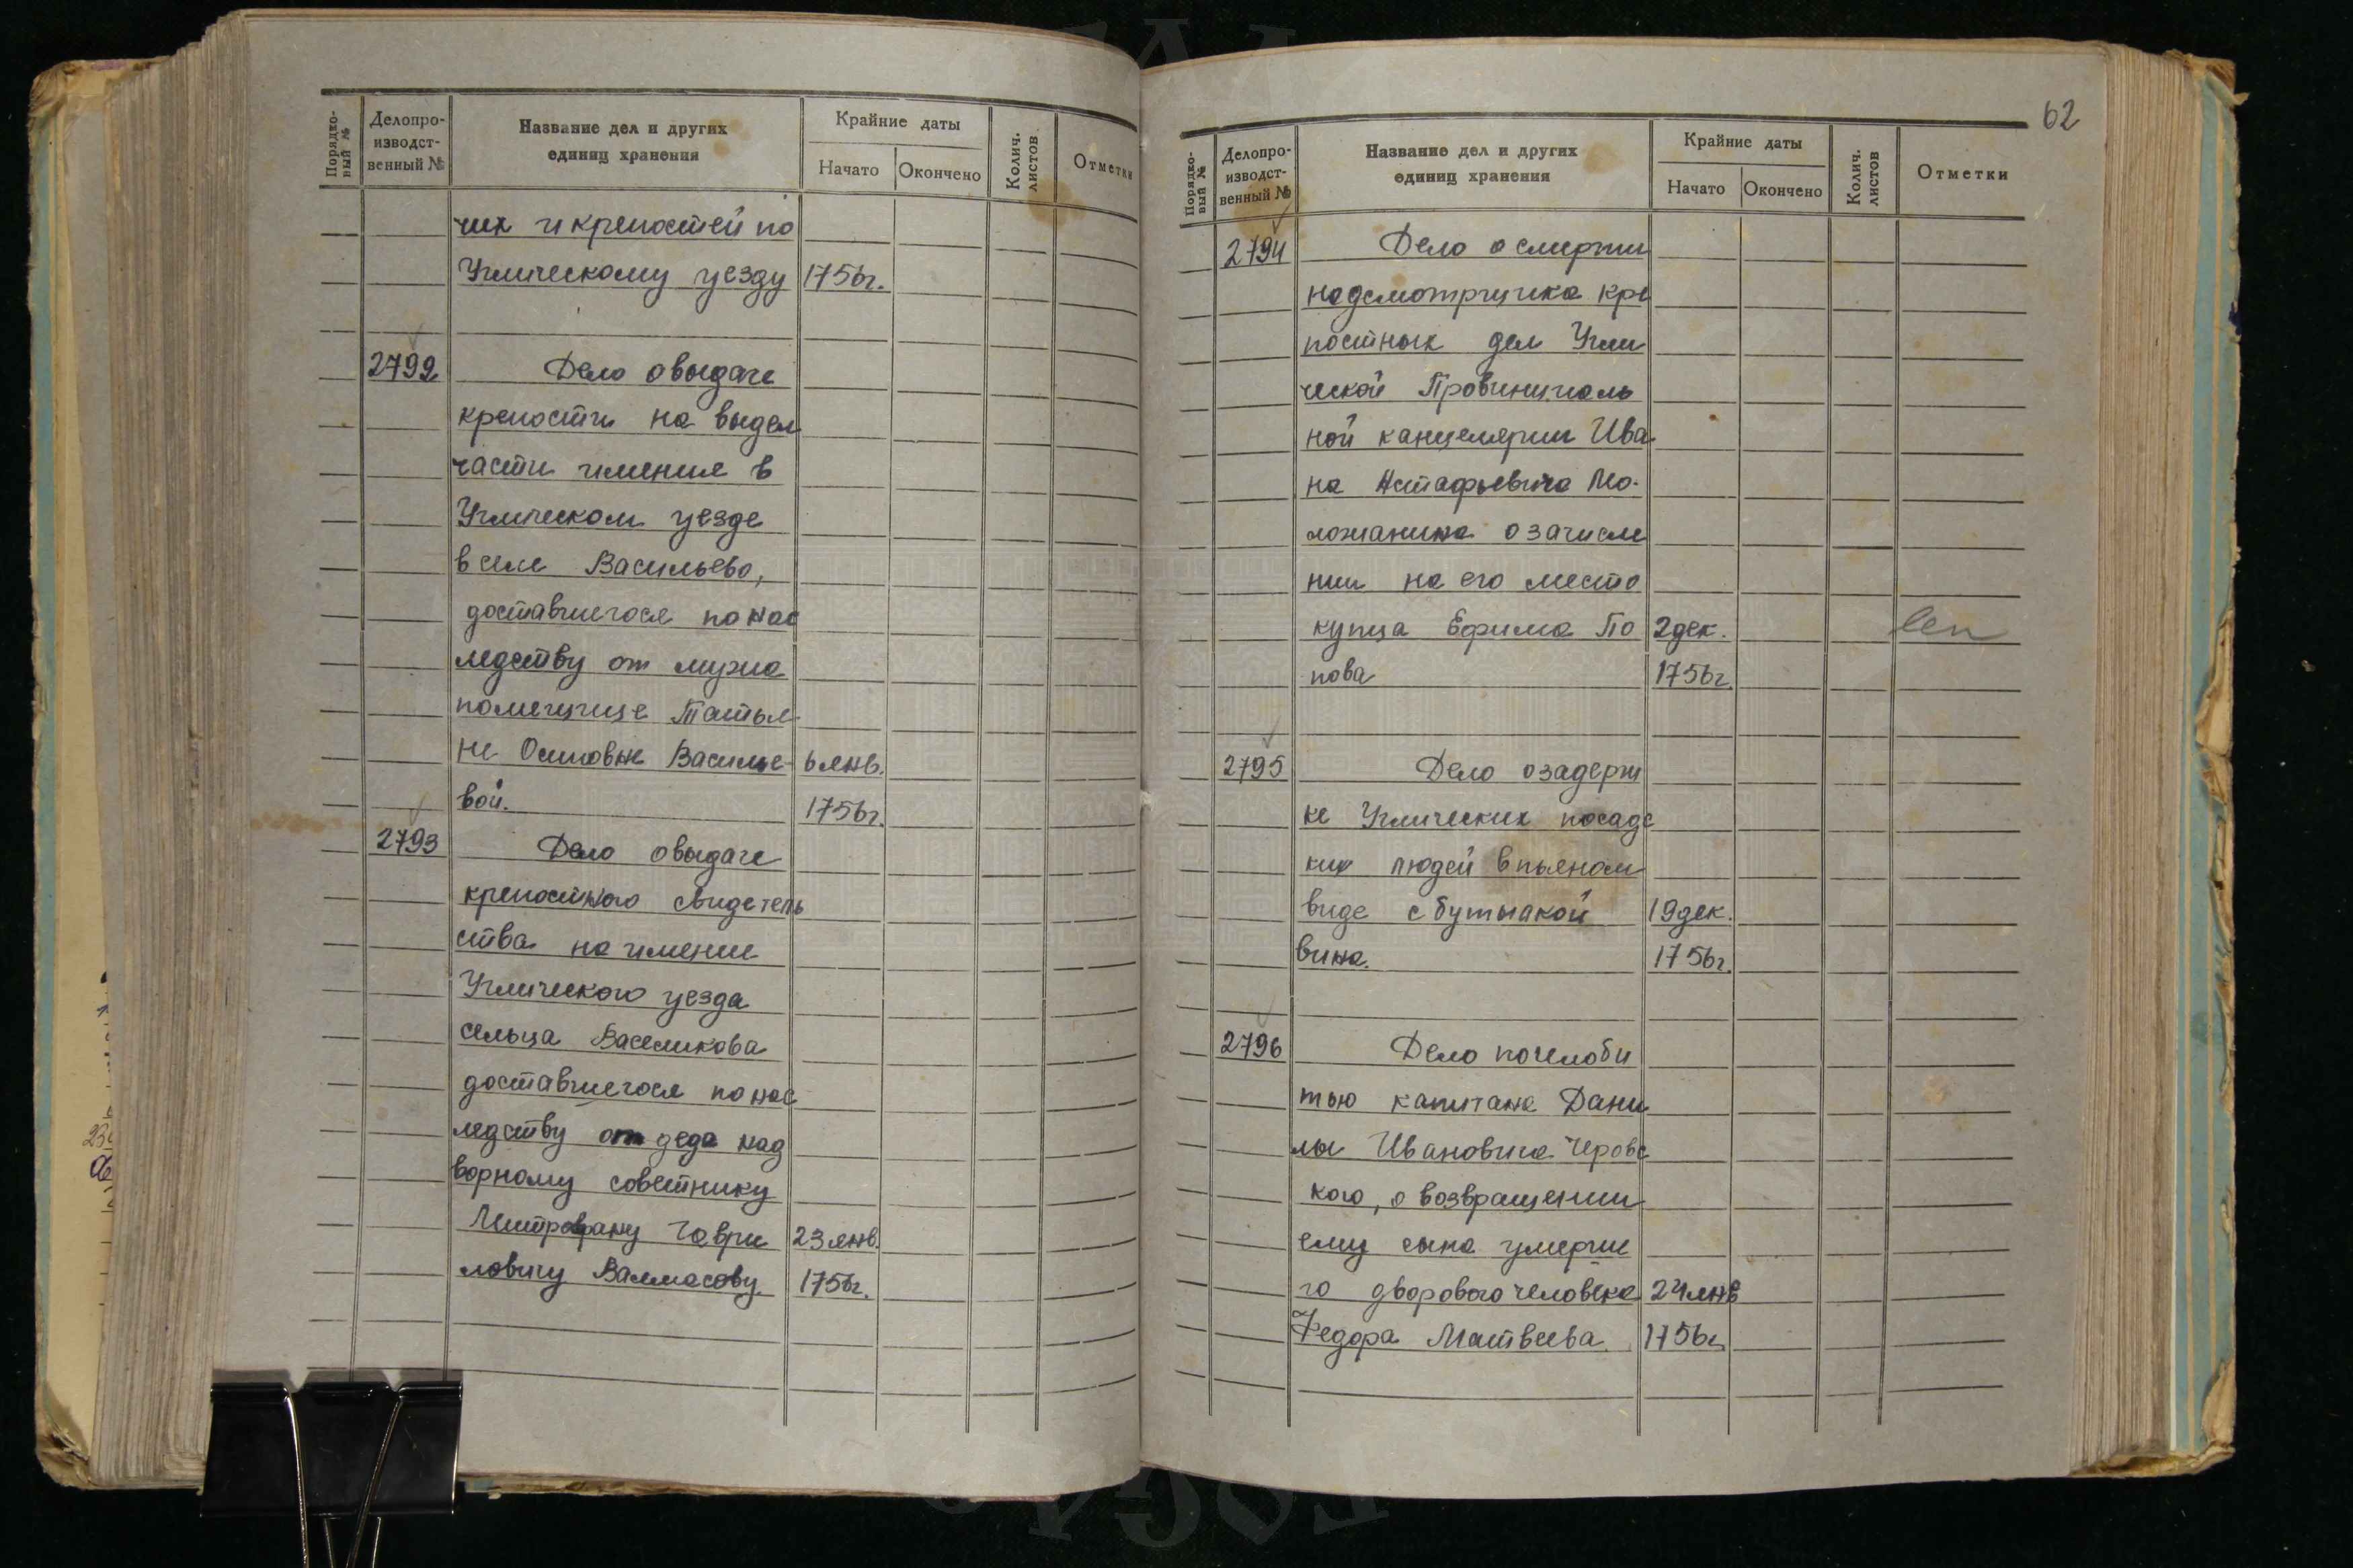 Порядко-
вый №
Делопро-
изводст-
венный №
Название дел и других
единиц хранения
Крайние даты
Начато
Окончено
Колич.
листов
Отметки
чих и крепостей по
Углическому уезду 1756г.
2792 Дело о выдаче
крепости на выдел
части имения в
Угличском уезде
в селе Васильево,
доставшегося по нас
ледству от мужа
помещице Татья-
не Осиповне Василье- 6 янв.
вой. 1756г.
2793 Дело о выдаче
крепостного свидетель
ства на имение
Углического уезда
сельца Васеликова
доставшегося по нас
ледству от деда над
ворному советнику
Митрофану Гаври 23 янв.
ловичу Валмасову. 1756г.
62
Порядко-
вый №
Делопро-
изводст-
венный №
Название дел и других
единиц хранения
Крайние даты
Начато
Окончено
Колич.
листов
Отметки
2794 Дело о смерти
надсмотрщика кре
постных дел Угли
ческой Провинциаль
ной канцелярии Ива
на Астафьевича Мо-
ложанина о зачисле
нии на его место
купца Ефима По 2 дек.
пова 1756г.
2795 Дело о задерж
ке Углических посадс
ких людей в пьяном
виде с бутылкой 19 дек.
вина. 1756г.
2796 Дело по челоби
тью капитана Дани
лы Ивановича Черевс
кого, о возвращении
ему сына умерше
го дворового человека 24 янв
Федора Матвеева. 1756г.